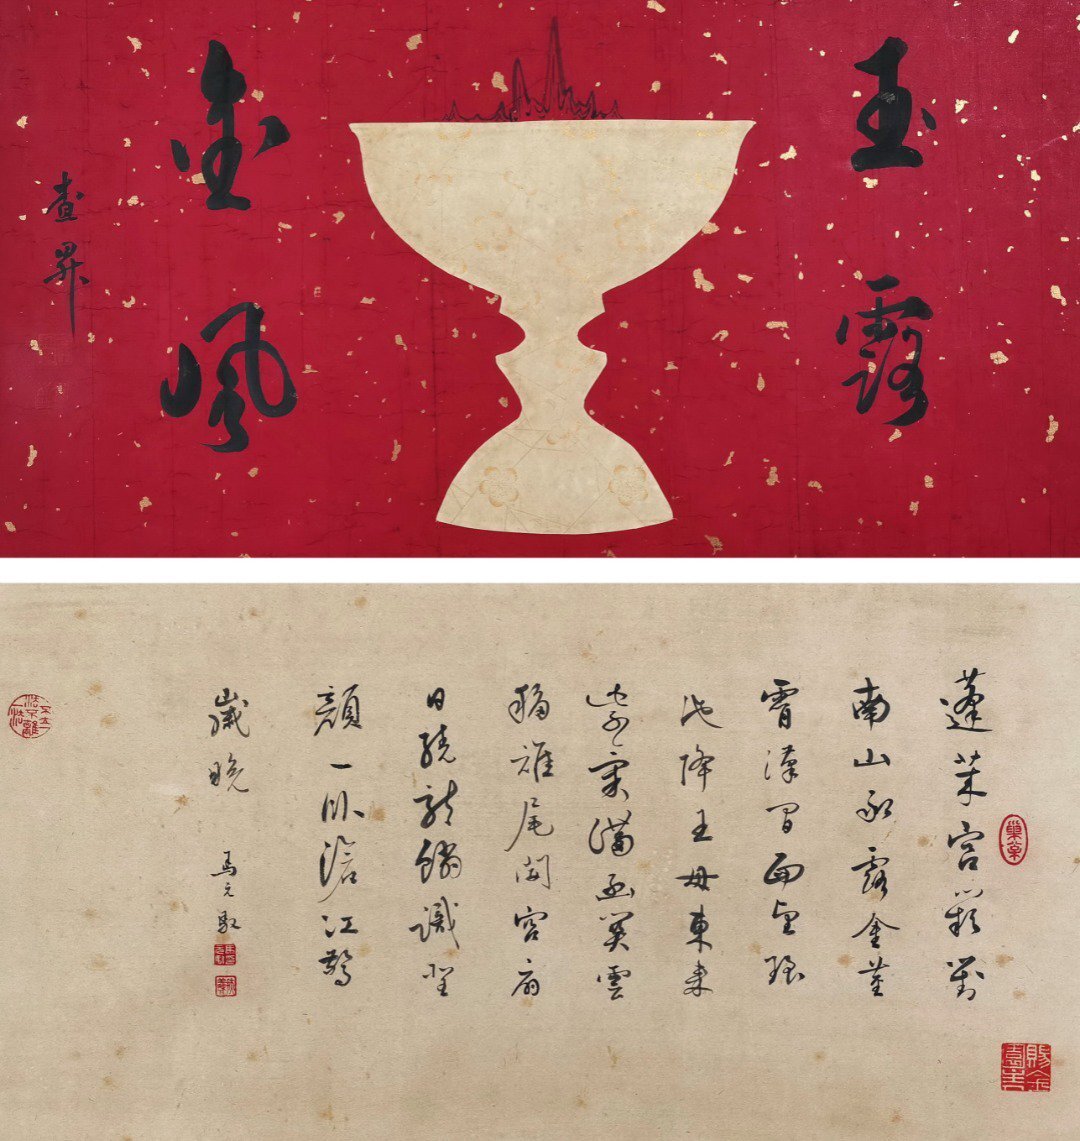 玉露
金風
查昇
蓬萊宮闕對
南山承露金莖
霄漢間西望瑤
池降王母東來
紫氣滿函關雲
移雉尾開宮扇
日繞龍鱗識聖
顏一臥滄江驚
歲晚
馬元馭